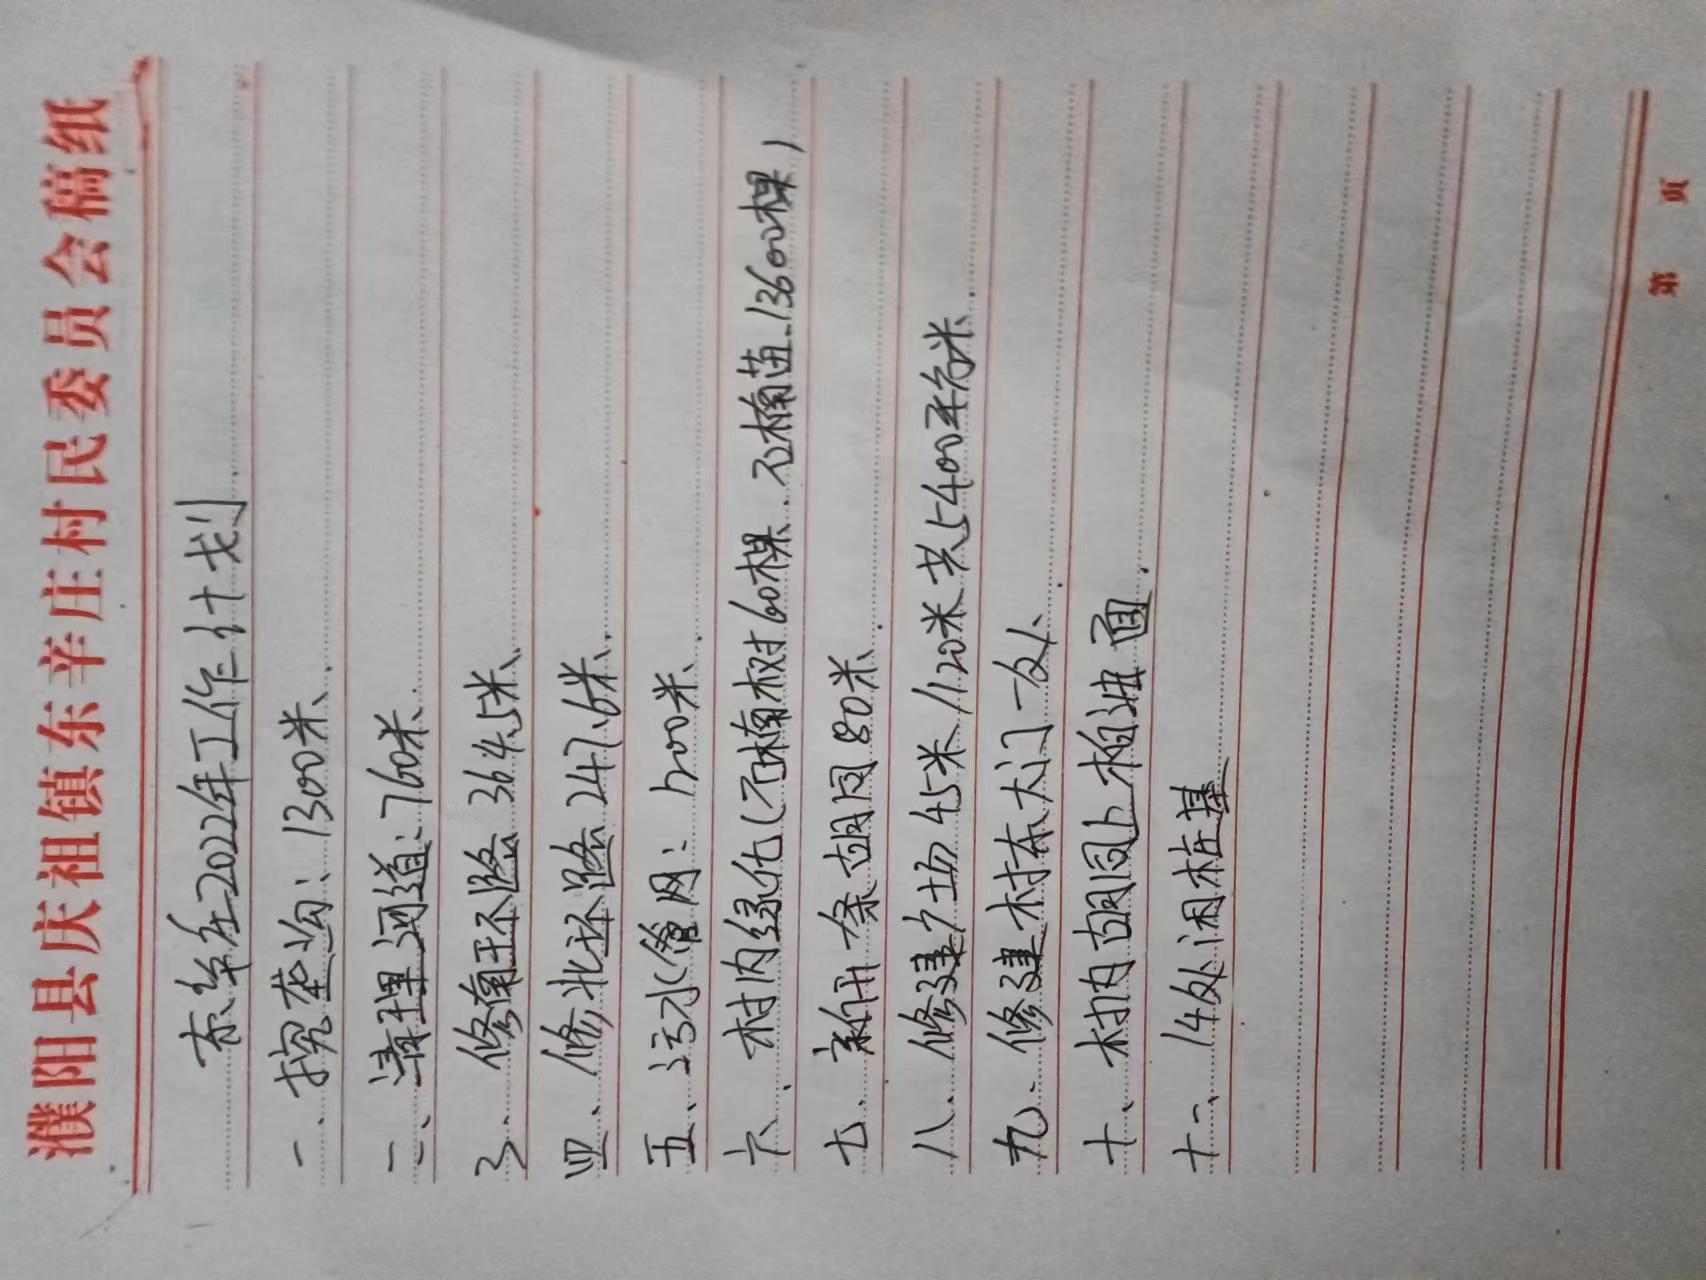 濮阳县庆祖镇东辛庄村民委员会稿纸
东辛庄2022年工作计划
一、挖垄沟：1300米
二、清理河道：760米
三、修南环路364.5米
四、修北环路247.6米
五、污水管网：500米
六、村内绿化（石楠树60棵、石楠苗13600棵）
七、新开一条胡同80米
八、修建广场45米/120米共5400平方米
九、修建村东大门一处
十、村内胡同上柏油面
十一、14处闲桩基
第 页